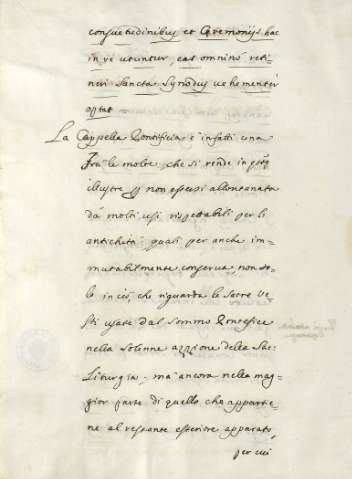 consuetudinibus et Ceremonijs hac
in re utuntur, eas omninò reti=
neri Sancta Synodus vehementer
optat
La Cappella Pontificia è infatti una
frà le molte, che si rende in
illustre non essersi allontanata
dà molti usi rispettabili per li
antichità quali per anche im=
mutabilmente conserva, non so=
lo in ciò, che riguarda le Sacre Ve
sti usate dal Sommo Pontefice
nella Solenne azzione della Sac:
Liturgia, mà ancora nella mag=
gior parte di quello che appartie=
ne al restante esteriore apparato,
per cui